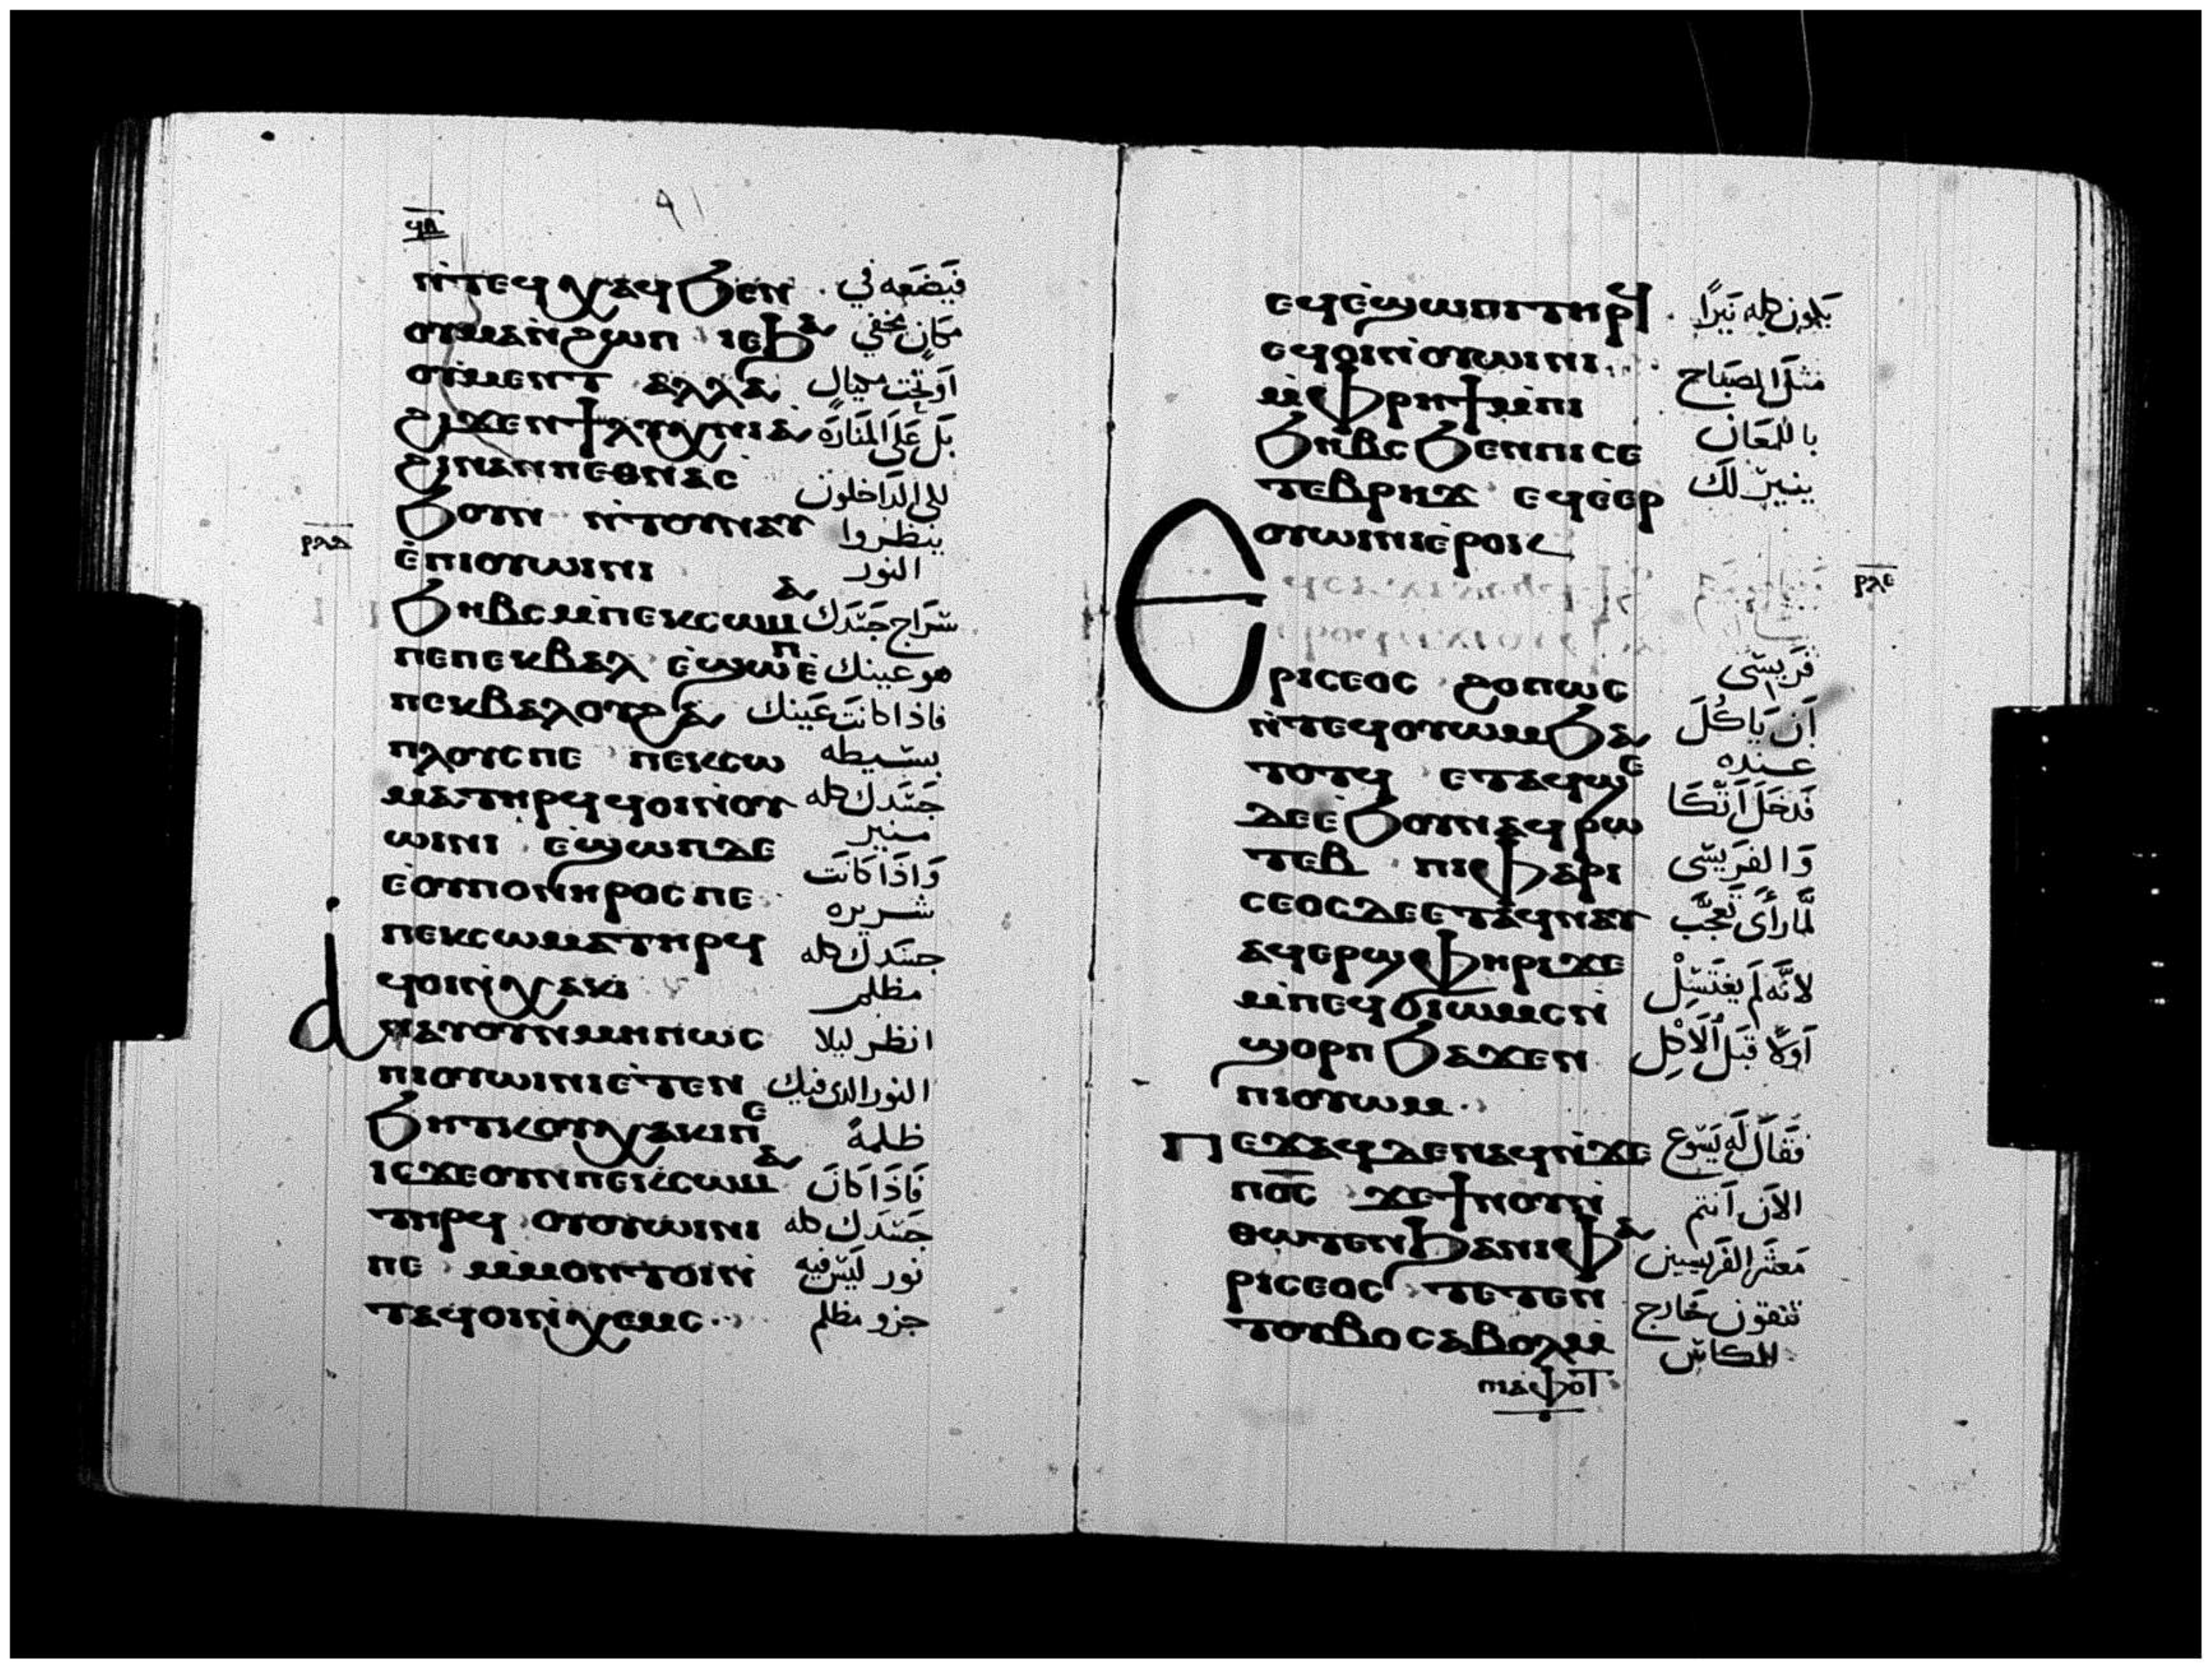 ϥⲁ
٩١
ⲛ̀ⲧⲉϥⲭⲁϥϧⲉⲛ فَيَضَعَه في
ⲟⲩⲙⲁⲛ̀ϩⲱⲡ ⲓⲉϧⲁ مَكانٍ مخفي
ⲟⲩⲙⲉⲛⲧ ⲁⲗⲗⲁ اَو تحت مكيال
ϩⲓϫⲉⲛϯⲗⲩⲭⲛⲓⲁ بَل عَلى المَنَارَة
ϩⲓⲛⲁⲛⲏⲉⲑⲛⲁⲥ لكي الداخلون
ϧⲟⲩⲛ ⲛ̀ⲧⲟⲩⲛⲁⲩ ينظروا
ⲉ̀ⲡⲓⲟⲩⲱⲓⲛⲓ النور
ⲣⲗⲇ
ϧⲏⲃⲥⲙ̀ⲡⲉⲕⲥⲱⲙⲁ سراج جسَدك
ⲡⲉⲡⲉⲕⲃⲁⲗ ⲉ̀ϣⲱⲡⲉ̀ هو عينك
ⲡⲉⲕⲃⲁⲗⲟⲩϩⲁ فاذا كانت عَينك
ⲡⲗⲟⲩⲥⲡⲉ ⲡⲉⲕⲥⲱ بسَيطه
ⲙⲁⲧⲏⲣϥϥⲟⲓⲛ̀ⲟⲩ جَسَدك كله
ⲱⲓⲛⲓ ⲉϣⲱⲡⲇⲉ منير
ⲉⲟⲩⲡⲟⲛⲏⲣⲟⲥⲡⲉ وَاذَا كانَت شريره
ⲡⲉⲕⲥⲱⲙⲁⲧⲏⲣϥ جسَدك كله
ϥⲟⲓⲛ̀ⲭⲁⲕⲓ مظلم
ⲁⲛⲁⲩⲟⲩⲛⲙⲏⲡⲱⲥ انظر ليلا
ⲡⲓⲟⲩⲱⲓⲛⲓⲉ̀ⲧⲉⲛ النور الذى فيك
ϧⲏⲧⲕⲟⲩⲭⲁⲕⲓⲡⲉ ظلمةً
ⲓⲥϫⲉⲟⲩⲛⲡⲉⲕⲥⲱⲙⲁ فَاذَا كانَ
ⲧⲏⲣϥ ⲟⲩⲟⲩⲱⲓⲛⲓ جَسَدك كله
ⲡⲉ ⲙ̀ⲙⲟⲛⲧⲟⲓⲛ̀ نور ليس فيه
ⲧⲁϥⲟⲓⲛ̀ⲭⲉⲙⲥ جزو مظلم
ⲉϥⲉ̀ϣⲱⲡⲓⲧⲏⲣϥ يَكون كله نَيرًا
ⲉϥⲟⲓⲛ̀ⲟⲩⲱⲓⲛⲓ
ⲙ̀ⲫⲣⲏϯⲙ̀ⲡⲓ مثل المصبَاح
ϧⲏⲃⲥϧⲉⲛⲡⲓⲥⲉ باللمعَان
ⲧⲉⲃⲣⲏϫ ⲉϥⲉ̀ⲉⲣ ينيرُ لك
ⲟⲩⲱⲓⲛⲓⲉ̀ⲣⲟⲕ
ⲣⲗⲉ
Ⲉ
ⲣⲓⲥⲉⲟⲥ ϩⲟⲡⲱⲥ فَريسى
ⲛ̀ⲧⲉϥⲟⲩⲱⲙϧⲁ اَن يَاكُلَ
ⲧⲟⲧϥ ⲉⲧⲁϥϣⲉ عنده
ⲇⲉⲉ̀ϧⲟⲩⲛⲁϥⲣⲱ فَدَخَلَ اتّكَا
ⲧⲉⲃ ⲡⲓⲫⲁⲣⲓ وَالفَريسى
ⲥⲉⲟⲥⲇⲉⲉⲧⲁϥⲛⲁⲩ لمَّا رَأى تَعجَّبَ
ⲁϥⲉⲣϣⲫⲏⲣⲓϫⲉ
ⲙ̀ⲡⲉϥϭⲓⲱⲙⲥⲛ̀ لانَّه لَم يغتَسِلْ
ϣⲟⲣⲡ ϧⲁϫⲉⲛ اَولًا قَبل الَاكِل
ⲡⲓⲟⲩⲱⲙ
Ⲡⲉϫⲁϥⲇⲉⲛⲁϥⲛ̀ϫⲉ فقَالَ لَه يَسوع
ⲡⲟ̅ⲥ̅ ϫⲉϯⲛⲟⲩⲛ̀ الاَن اَنتم
ⲑⲱⲧⲉⲛϧⲁⲛⲓⲫⲁ مَعشَر الفَريسيين
ⲣⲓⲥⲉⲟⲥ ⲧⲉⲧⲉⲛ تنقون خَارج
ⲧⲟⲩⲃⲟⲥⲁⲃⲟⲗⲙ̀ الكاس
ⲡⲓⲁⲫⲟⲧ